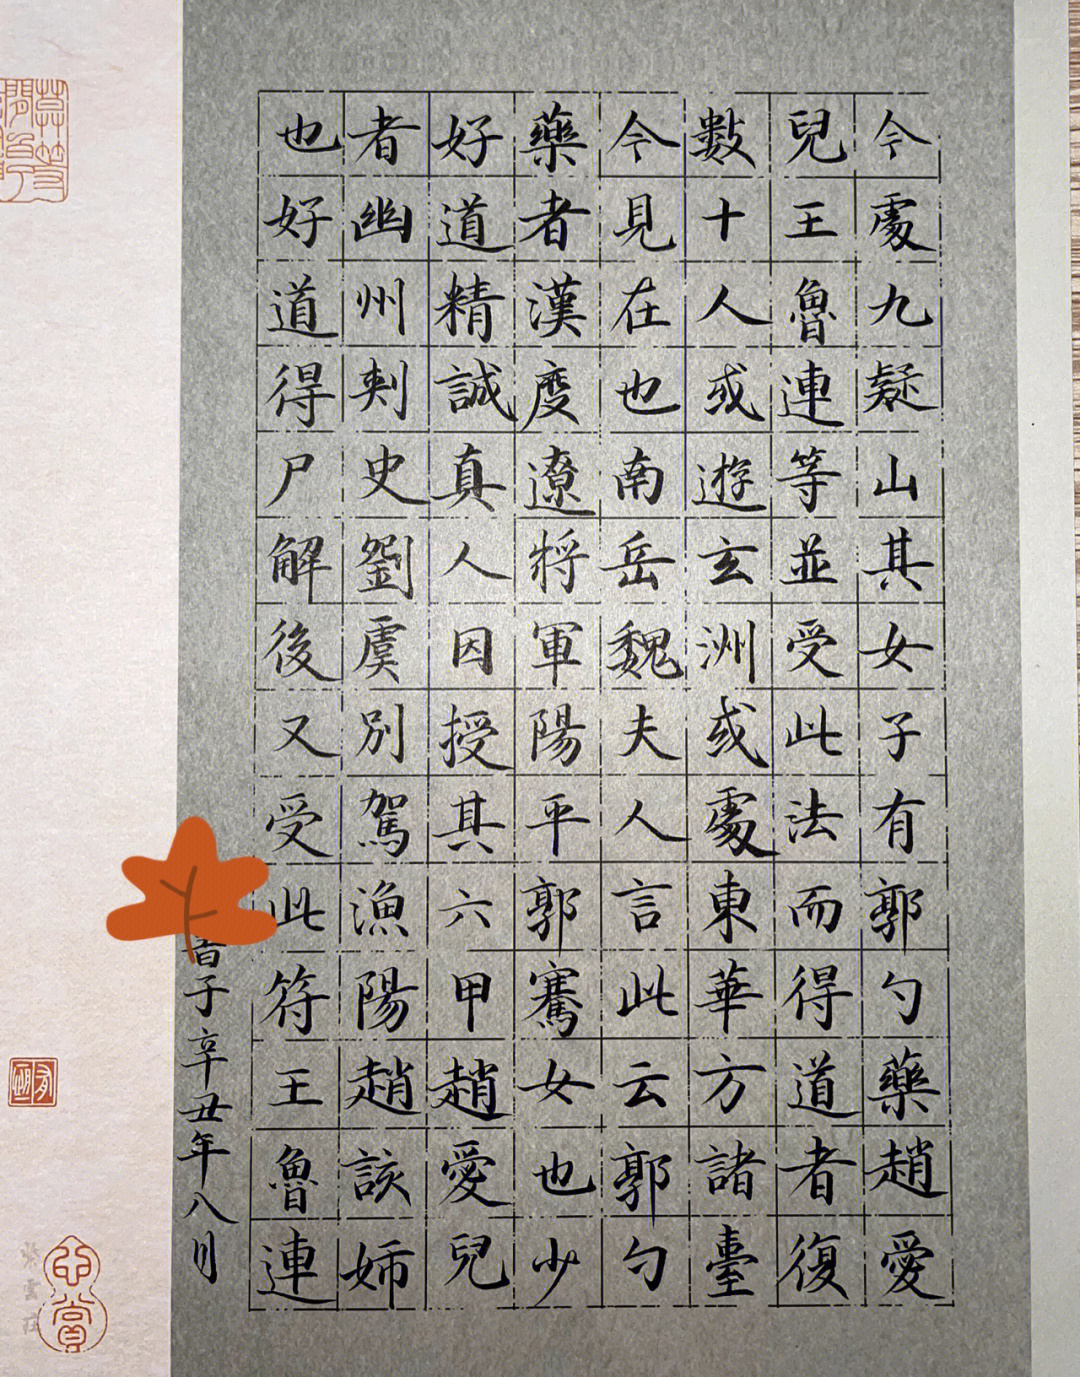 今處九疑山其女子有郭勺藥趙愛
兒王魯連等並受此法而得道者復
數十人或遊玄洲或處東華方諸臺
今見在也南岳魏夫人言此云郭勺
藥者漢度遼將軍陽平郭騫女也少
好道精誠真人因授其六甲趙愛兒
者幽州刺史劉虞別駕漁陽趙該姊
也好道得尸解後又受此符王魯連
音子辛丑年八月